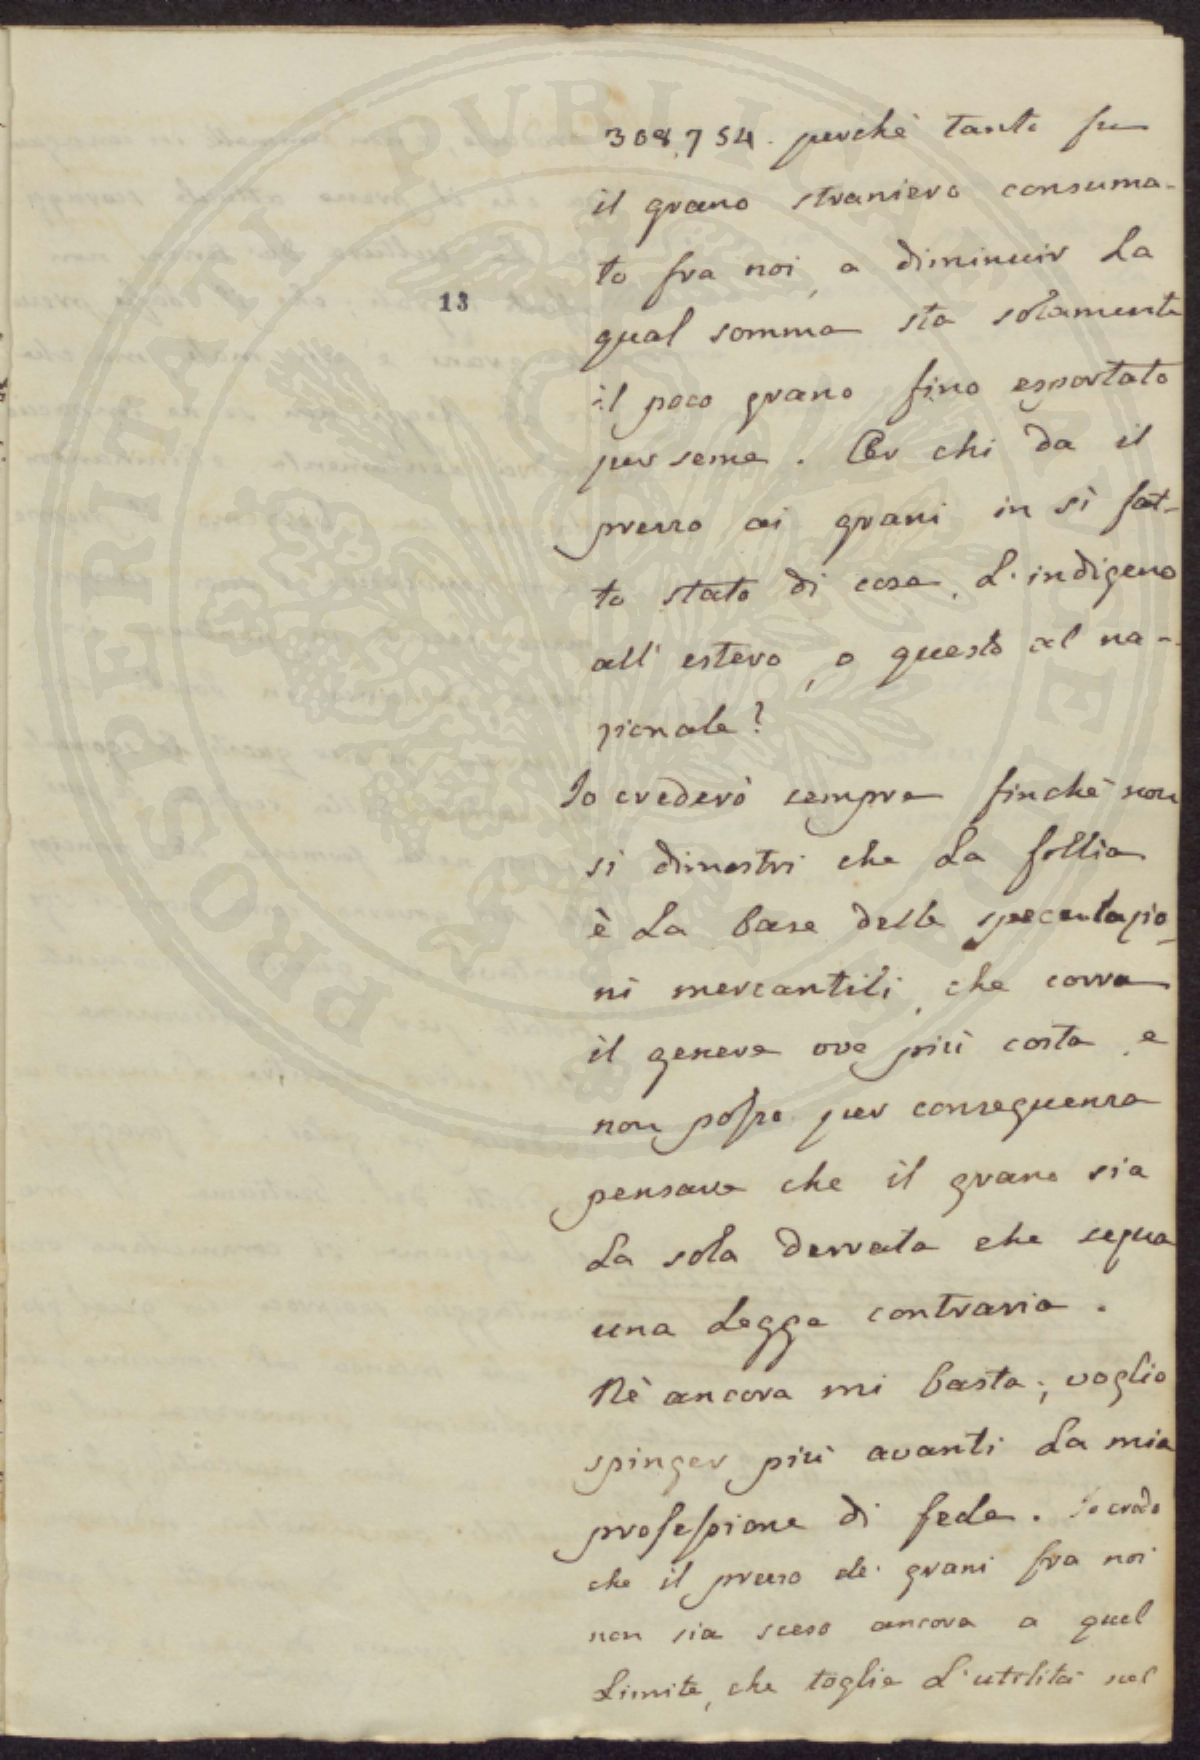 PROSPERITATI PUBLICAE AUGENDAE
13
308,754. perchè tanto fu
il grano straniero consuma-
to fra noi, a diminuir la
qual somma sta solamente
il poco grano fino esportato
per seme. Or chi da il
prezzo ai grani in sì fat-
to stato di cose, L'indigeno
all'estero, o questo al na-
zionale?
Io crederò sempre finchè non
si dimostri che la follia
è la base delle speculazio-
ni mercantili, che corra
il genere ove più costa, e
non posso per conseguenza
pensare che il grano sia
la sola derrata che segua
una legge contraria.
Nè ancora mi basta; voglio
spinger più avanti la mia
professione di fede. Io credo
che il prezzo de' grani fra noi
non sia sceso ancora a quel
limite, che toglie l'utilità nel